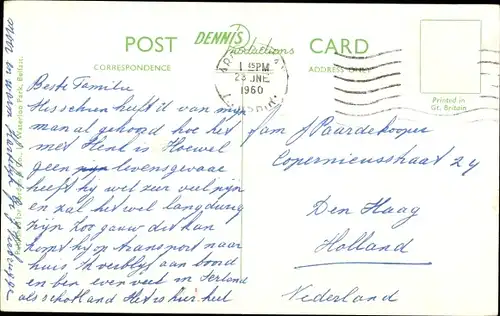 POST
CORRESPONDENCE
DENNIS
Productions
CARD
ADDRESS ONLY
1 15PM
23 JNE
1960
Printed in
Gt. Britain
Beste Familie
Misschien heeft U van mijn
man al gehoord hoe het
met Henk is Hoewel
geen levensgevaar
heeft hij wel zeer veel pijn
en zal het wel langdurig
zijn Zoo gauw dit kan
komt hij op transport naar
huis Ik verblijf aan boord
en ben even veel in Ierland
als schotland Het is hier heel
Fam J Paardekooper
Copernicusstraat 24
Den Haag
Holland
Nederland
mooi en warm Hartelijk Gr.
Waterloo Park, Belfast.